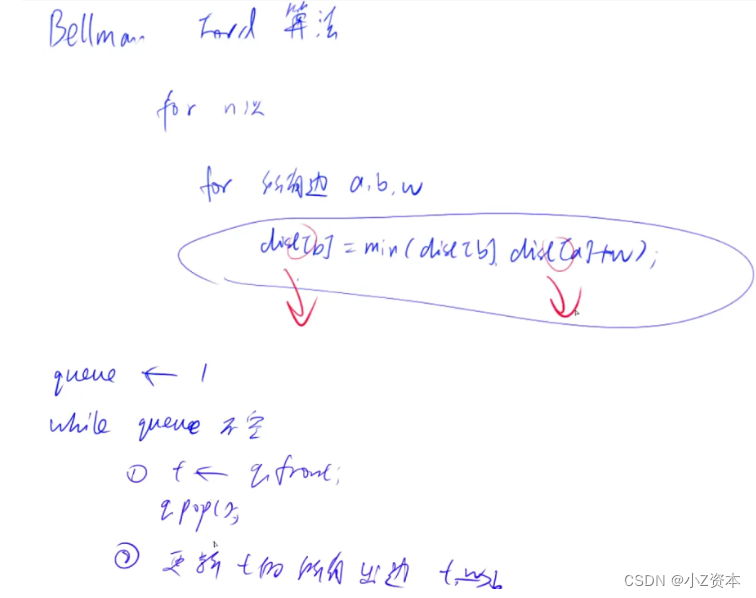 Bellman Ford 算法
for n次
for 所有边 a,b,w
dist[b] = min(dist[b], dist[a]+w);
queue ← 1
while queue 不空
① t ← q.front;
q.pop();
② 更新t的所有出边 t
CSDN @小Z资本